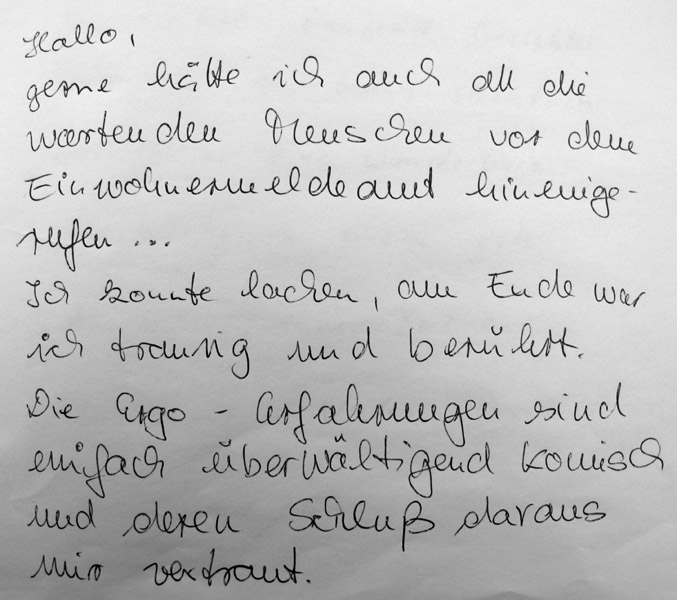 Hallo,
gerne hätte ich auch all die
wartenden Menschen vor dem
Einwohnermeldeamt hineinge-
rufen ...
Ich konnte lachen, am Ende war
ich traurig und berührt.
Die Ergo - Erfahrungen sind
einfach überwältigend komisch
und deren Schluß daraus
mir vertraut.